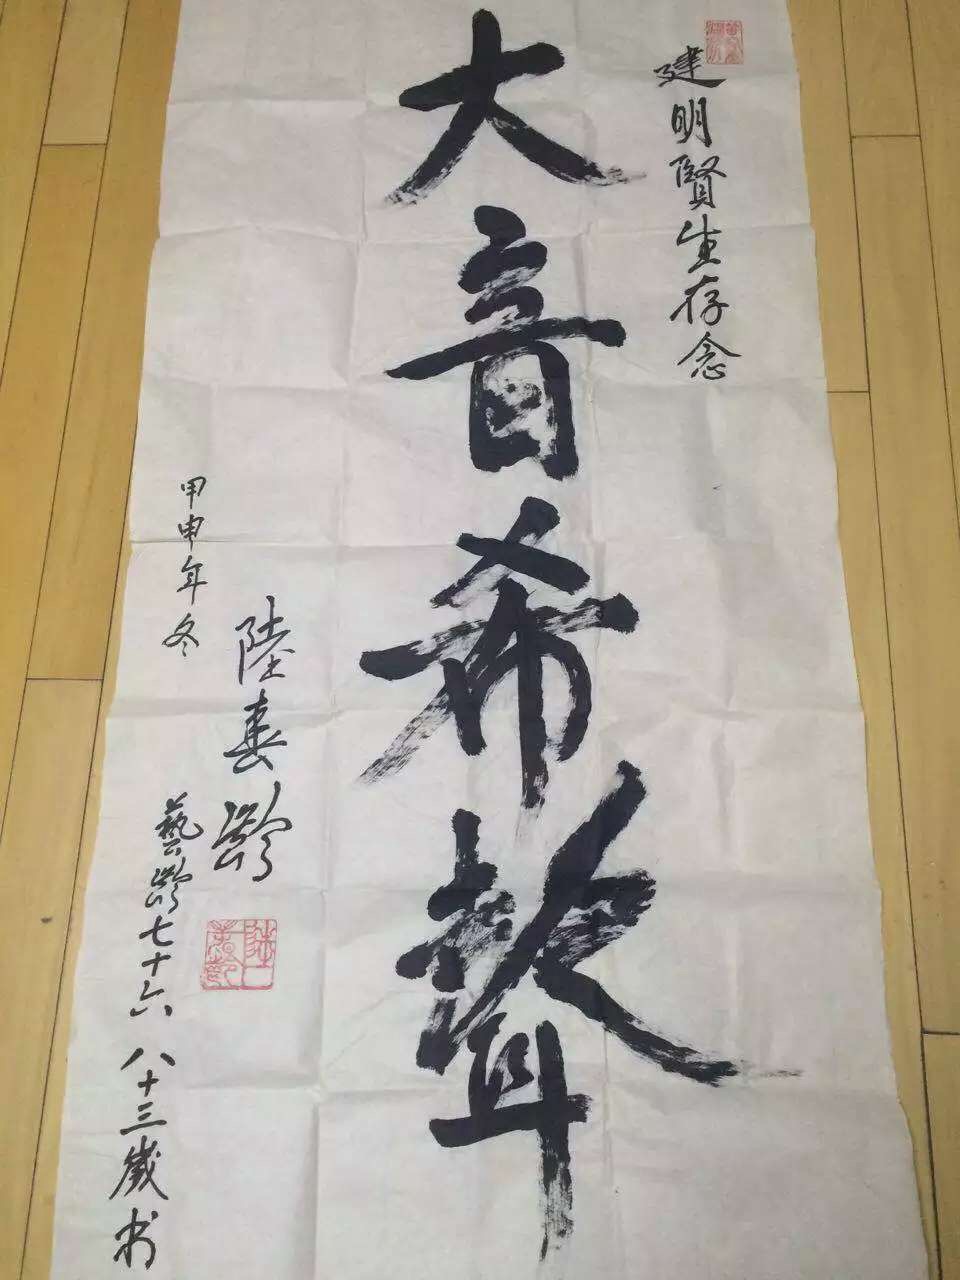 建明賢生存念
大音希聲
甲申年冬
陸春齡
藝齡七十六 八十三歲书